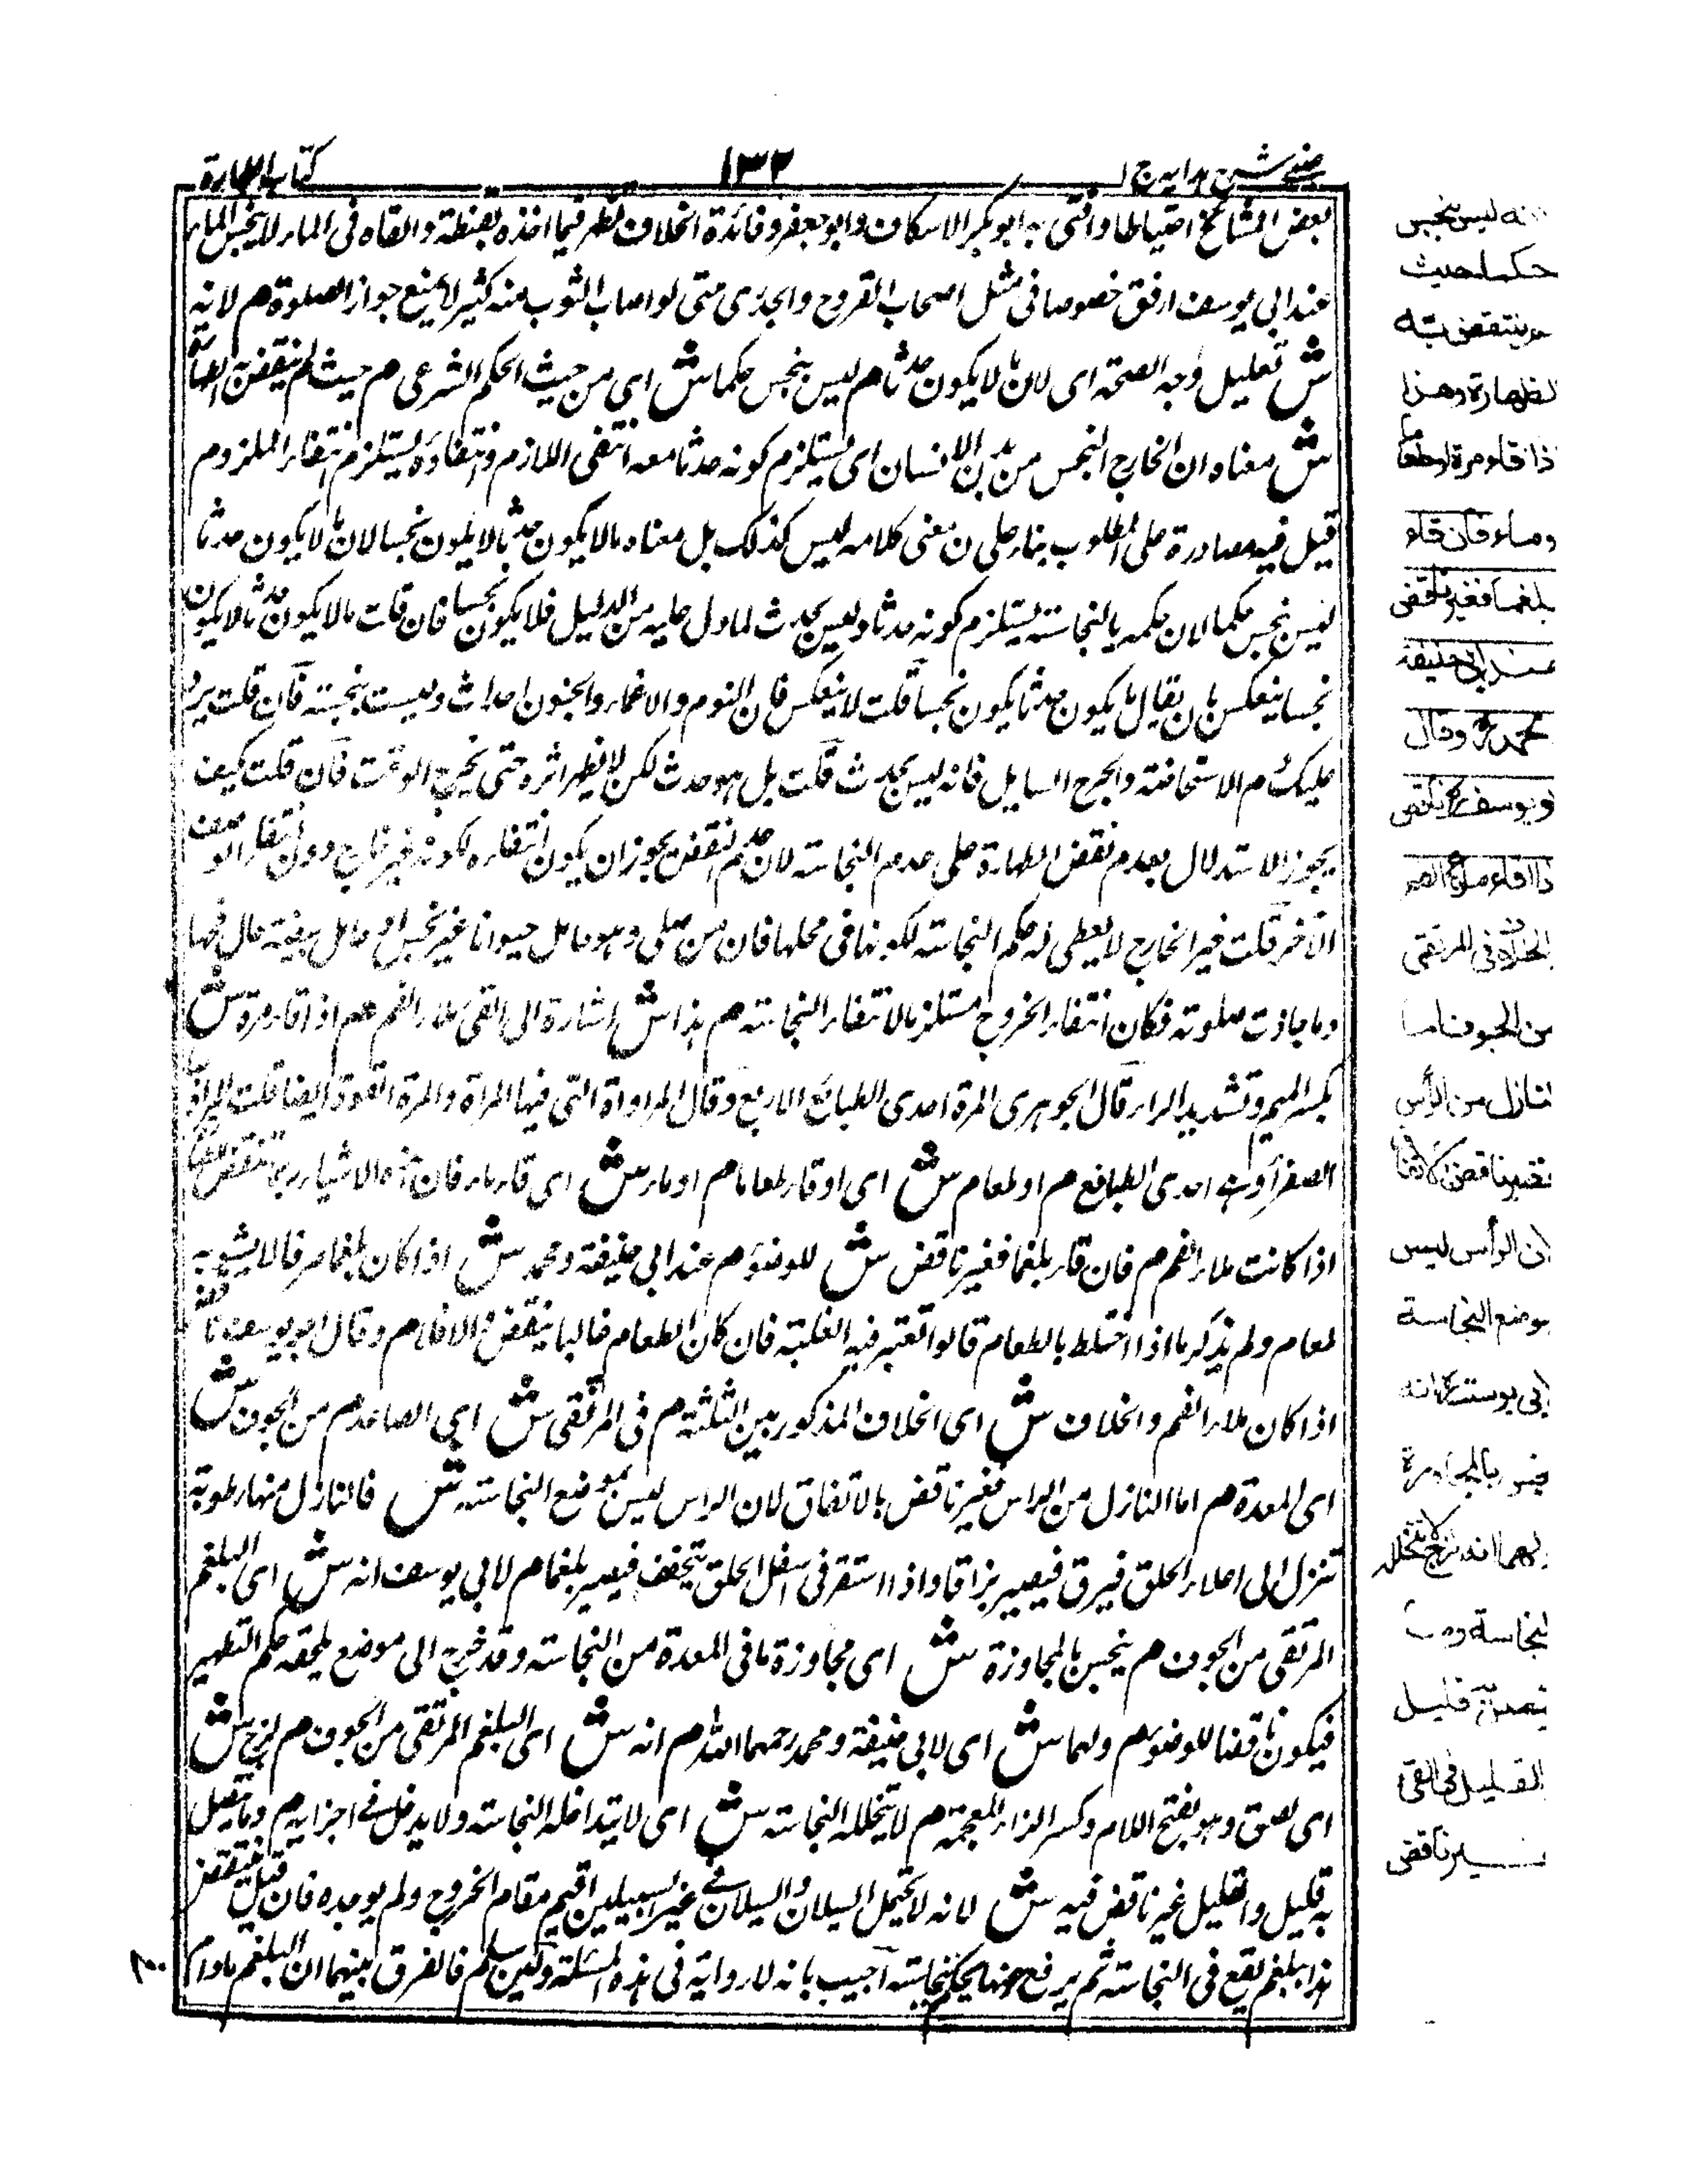 عینی شرح هدایه ج ۱
۱۳۲
کتاب الطهارة
بعض المشائخ احتیاطا وافتی به ابو بکر الاسکاف وابو جعفر وفائدة الخلاف تظهر فیما اخذه بقطنة والقاه فی الماء لا ینجس الماء
عند ابی یوسف ارفق خصوصا فی مثل اصحاب القروح والجدری حتی لو اصاب الثوب منه کثیر لا یمنع جواز الصلوة م لانه
ش تعلیل وجه الصحة ای لان ما لا یکون حدثا م لیس بنجس حکما ش ای من حیث الحکم الشرعی م حیث لم ینتقض به الطهارة
ش معناه ان الخارج النجس من بدن الانسان ای یستلزم کونه حدثا معه انتفی اللازم وانتفاؤه یستلزم انتفاء الملزوم
قیل فیه مصادرة علی المطلوب بناء علی ان معنی کلامه لیس کذلک بل معناه ما لا یکون حدثا لا یکون نجسا لان ما لا یکون حدثا
لیس بنجس حکما لان حکمه بالنجاسة یستلزم کونه حدثا ولیس بحدث لما دل علیه من الدلیل فلا یکون نجسا فان قلت ما لا یکون حدثا لا یکون
نجسا ینعکس بان یقال ما یکون حدثا یکون نجسا قلت لا ینعکس فان النوم والاغماء والجنون احداث ولیست بنجسة فان قلت یرد
علیک دم الاستحاضة والجرح السایل فانه لیس بحدث قلت بل هو حدث لکن لا یظهر اثره حتی یخرج الوقت فان قلت کیف
یجوز الاستدلال بعدم نقض الطهارة علی عدم النجاسة لان عدم النقض یجوز ان یکون انتفاؤه لکونه غیر خارج دون انتفاء الوصف
الآخر قلت غیر الخارج لا یعطی له حکم النجاسة لکونها فی محلها فان من صلی وهو حامل حیوانا غیر نجس او حامل بیضة حال فحها
دما جازت صلوته فکان انتفاء الخروج مستلزما لانتفاء النجاسة م هذا ش اشارة الی القئ ملاء الفم م اذا قاء مرة ش
بکسر المیم وتشدید الراء قال الجوهری المرة احدی الطبائع الاربع وقال المرارة التی فیها المرة والمرة القوة ایضا قلت المراد
الصفراء وهی احدی الطبائع م او طعاما ش ای او قاء طعاما م او ماء ش ای قاء ماء فان هذه الاشیاء تنتقض
اذا کانت ملاء الفم م فان قاء بلغما فغیر ناقض ش للوضوء م عند ابی حنیفة ومحمد ش اذا کان بلغما صرفا لا یشوبه
طعام ولم یذکر ما اذا اختلط بالطعام قالوا تعتبر فیه الغلبة فان کان الطعام غالبا ینقض والا فلا م وقال ابو یوسف ناقض
اذا کان ملاء الفم والخلاف ش ای الخلاف المذکور بین الثلثة م فی المرتقی ش ای الصاعد م من الجوف ش
ای المعدة م اما النازل من الراس فغیر ناقض بالاتفاق لان الراس لیس بموضع النجاسة ش فالنازل منها رطوبة
تنزل الی اعلاء الحلق فیرق فیصیر بزاقا واذا استقر فی اسفل الحلق یتخفف فیصیر بلغما م لابی یوسف انه ش ای البلغم
المرتقی من الجوف م ینجس بالمجاوزة ش ای مجاوزة ما فی المعدة من النجاسة وقد خرج الی موضع یلحقه حکم التطهیر
فیکون ناقضا للوضوء م ولهما ش ای لابی حنیفة ومحمد رحمهما الله م انه ش ای البلغم المرتقی من الجوف م لزج ش
ای لصق وهو بفتح اللام وکسر الزاء المعجمة م لا یتخلله النجاسة ش ای لا یتداخله النجاسة ولا یدخل فی اجزایه م وما یتصل
به قلیل والقلیل غیر ناقض فیه ش لانه لا یحتمل السیلان والسیلان فی غیر السبیلین اقیم مقام الخروج ولم یوجده فان قیل ینتقض
هذا ببلغم یقع فی النجاسة ثم یرفع منها یحکم بنجاسته اجیب بانه لا روایة فی هذه المسئلة ولئن سلم فالفرق بینهما ان البلغم ما دام
انه لیس بنجس
حکما حیث
لم ینتقض به
الطهارة وهذا
اذا قاء مرة او طعاما
او ماء فان قاء
بلغما فغیر ناقض
عند ابی حنیفة
محمد وقال
ابو یوسف ناقض
اذا قاء ملاء الفم
الخلاف فی المرتقی
من الجوف اما
النازل من الرأس
فغیر ناقض لان
الرأس لیس
بموضع النجاسة
لابی یوسف انه
نجس بالمجاورة
ولهما انه لزج لا یتخلله
النجاسة وما
یتصل به قلیل
القلیل فی القئ
غیر ناقض